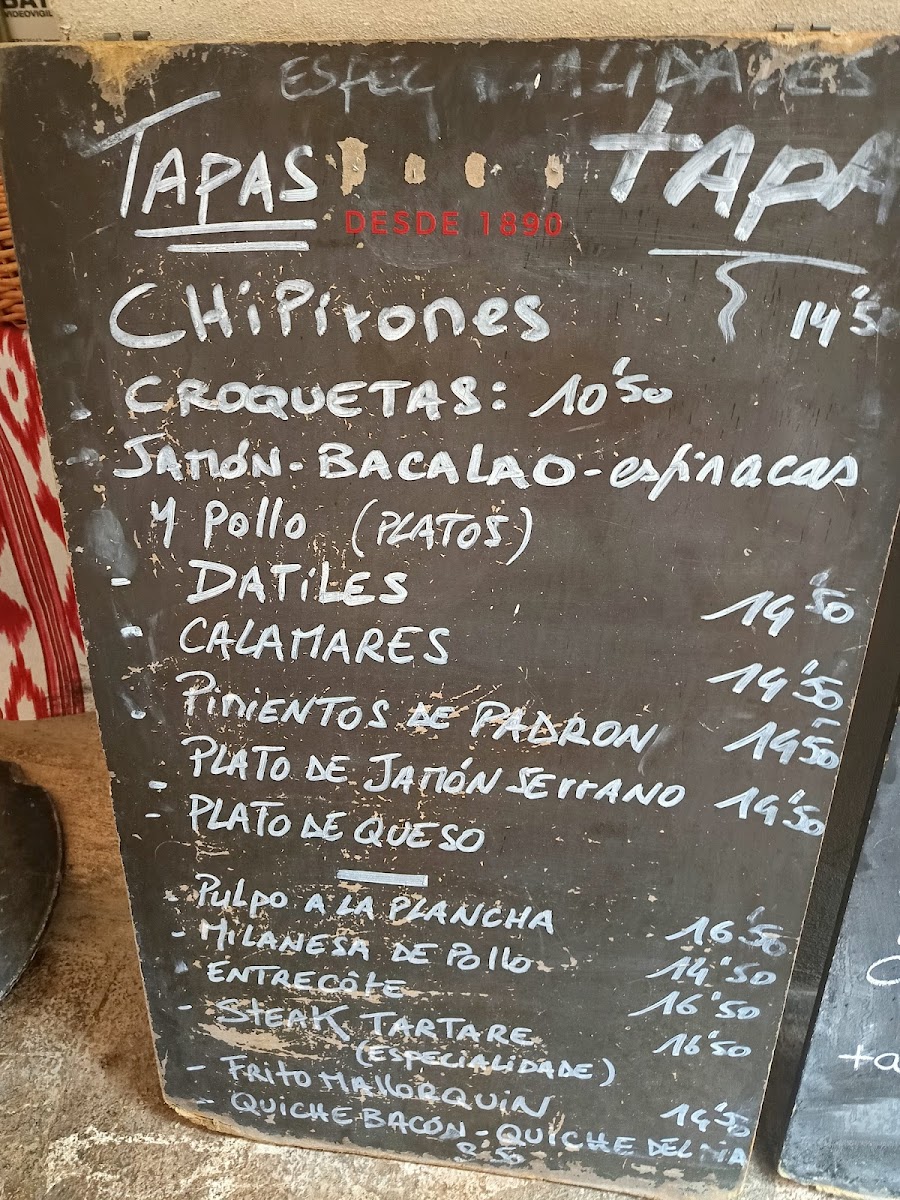 VIDEOVIGIL
TAPAS .... TAPA
DESDE 1890
CHIPIRONES 14'50
CROQUETAS: 10'50
JAMÓN-BACALAO-espinacas
y Pollo (PLATOS)
- DATILES 14'50
- CALAMARES 14'50
- PIMIENTOS DE PADRON 14'50
- PLATO DE JAMÓN SERRANO 14'50
- PLATO DE QUESO
- PULPO A LA PLANCHA 16'50
- MILANESA DE POLLO 14'50
- ENTRECÔTE 16'50
- STEAK TARTARE 16'50
(ESPECIALIDADE)
- FRITO MALLORQUIN 14'50
- QUICHE BACÓN - QUICHE DEL
8'50